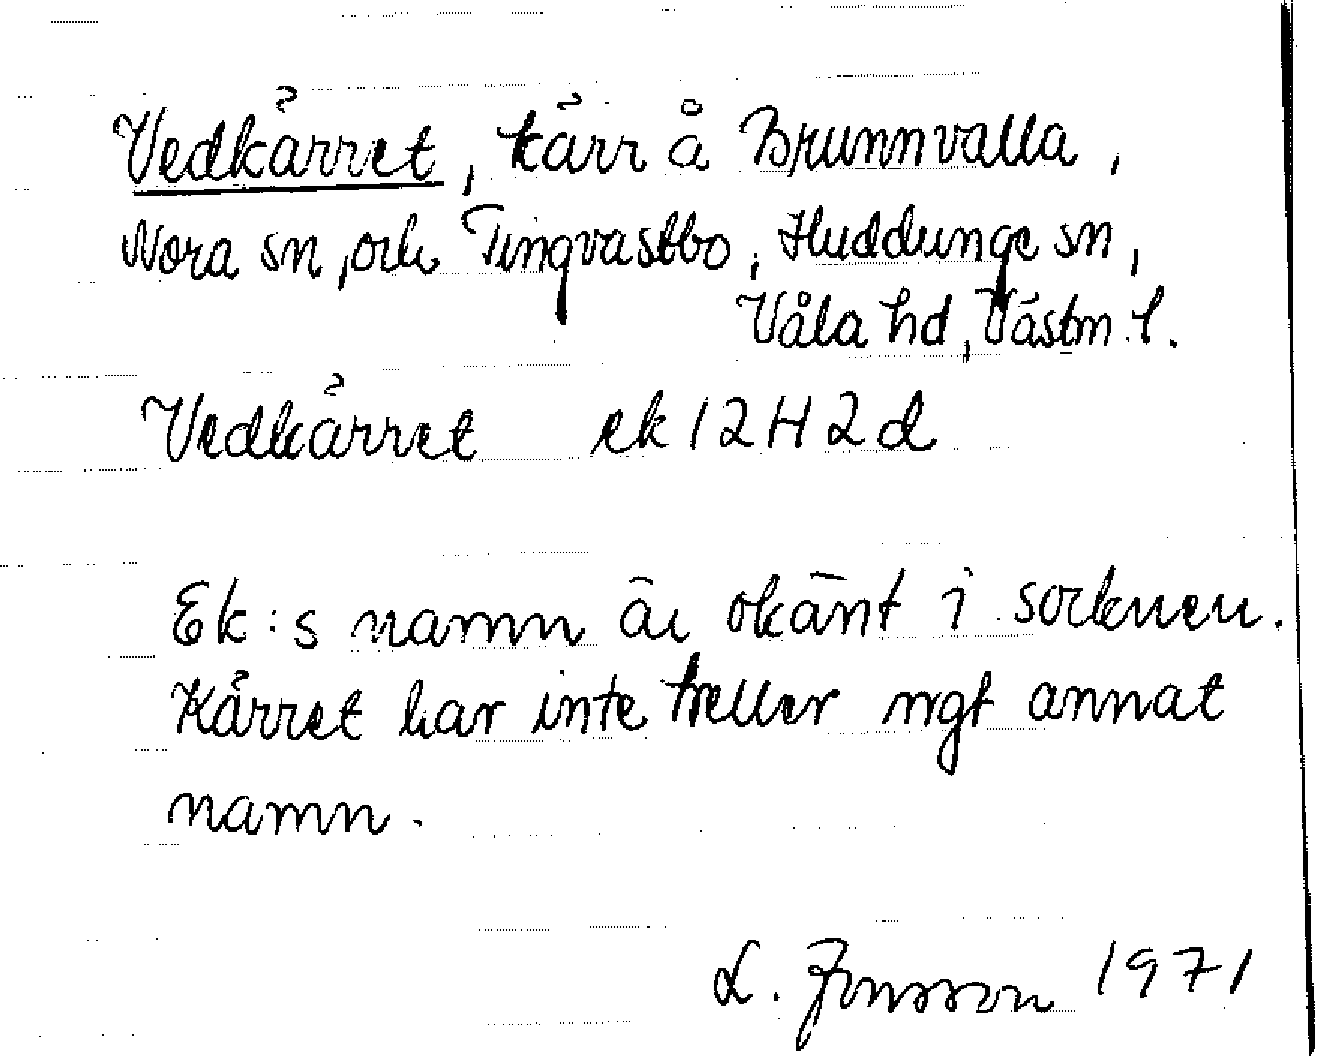 Vedkärret, kärr å Brunnvalla,
Nora sn, och Tingvastbo, Huddunge sn,
Våla hd, Västm. l.
Vedkärret ek 12H2d
Ek:s namn är okänt i socknen.
Kärret har inte heller ngt annat
namn.
L. Jonsson 1971